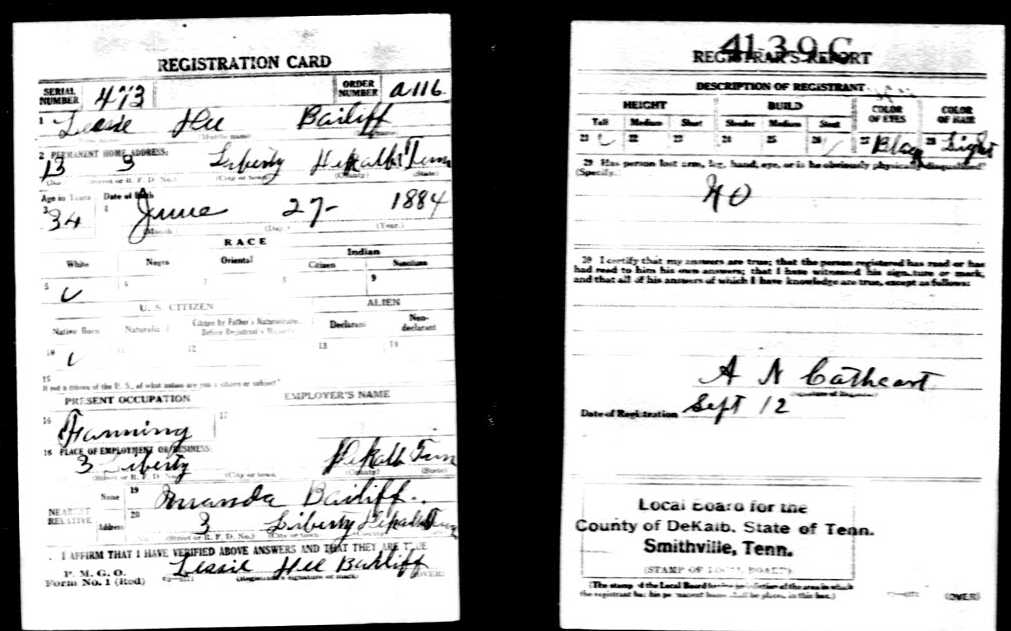 REGISTRATION CARD
SERIAL NUMBER 473 ORDER NUMBER A116
1 Lessie Hee Bailiff
2 PERMANENT HOME ADDRESS:
3 Liberty DeKalb Tenn
(Street or R. F. D. No.) (City or town) (County) (State)
Age in Years Date of Birth
3 34 4 June 27- 1884
(Month) (Day) (Year)
RACE
White Negro Oriental Indian
Citizen Noncitizen
5 6 7 8 9
U. S. CITIZEN ALIEN
Native Born Naturalized Citizen by Father's Naturalization Before Registrant's Majority Declarant Non-declarant
10 11 12 13 14
15
If not a citizen of the U. S., of what nation are you a citizen or subject?
PRESENT OCCUPATION EMPLOYER'S NAME
16 Farming 17
18 PLACE OF EMPLOYMENT OR BUSINESS:
3 Liberty DeKalb Tenn
(Street or R. F. D. No.) (City or town) (County) (State)
NEAREST RELATIVE Name 19 Bailiff
Address 20 3 Liberty DeKalb Tenn
(Street or R. F. D. No.) (City or town) (County)
I AFFIRM THAT I HAVE VERIFIED ABOVE ANSWERS AND THAT THEY ARE TRUE
P. M. G. O.
Form No. 1 (Red) Lessie Hee Bailiff
(Registrant's signature or mark) (OVER)
41-3-9 C
REGISTRAR'S REPORT
DESCRIPTION OF REGISTRANT
HEIGHT BUILD COLOR OF EYES COLOR OF HAIR
Tall Medium Short Slender Medium Stout
21 22 23 24 25 26 27 28 Light
29 Has person lost arm, leg, hand, eye, or is he obviously physically disqualified?
(Specify.)
NO
30 I certify that my answers are true; that the person registered has read or has
had read to him his own answers; that I have witnessed his signature or mark,
and that all of his answers of which I have knowledge are true, except as follows:
A N Cathcart
(Signature of Registrar)
Date of Registration Sept 12
Local Board for the
County of DeKalb. State of Tenn.
Smithville, Tenn.
(STAMP OF LOCAL BOARD)
(The stamp of the Local Board having jurisdiction of the area in which
the registrant has his permanent home shall be placed in this box.)
(OVER)